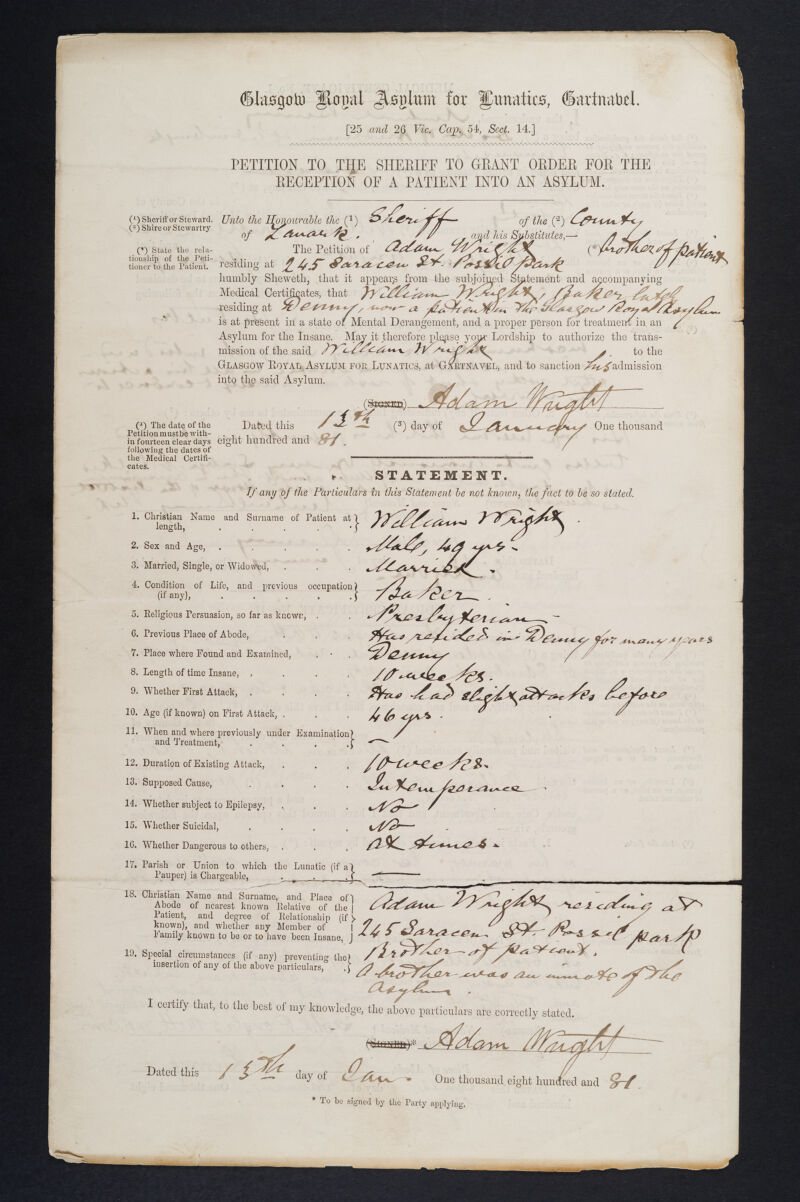 Glasgow Royal Asylum for Lunatics, Gartnavel.
[25 and 26 Vic. Cap. 54, Sect. 14.]
PETITION TO THE SHERIFF TO GRANT ORDER FOR THE
RECEPTION OF A PATIENT INTO AN ASYLUM.
(¹) Sheriff or Steward.
(²) Shire or Stewartry
Unto the Honourable the (¹) Sheriff of the (²) County
of Lanark. and his Substitutes,—
(*) State the rela-
tionship of the Peti-
tioner to the Patient.
The Petition of Adam Wright (* brother of patient
residing at 245 Saracen St. Possil Park
humbly Sheweth, that it appears from the subjoined Statement and accompanying
Medical Certificates, that William Wright, Baker lately
residing at Denny, now a patient in the Glasgow Royal Asylum
is at present in a state of Mental Derangement, and a proper person for treatment in an
Asylum for the Insane. May it therefore please your Lordship to authorize the trans-
mission of the said William Wright to the
GLASGOW ROYAL ASYLUM FOR LUNATICS, AT GARTNAVEL, and to sanction his admission
into the said Asylum.
(SIGNED) Adam Wright
(³) The date of the
Petition must be with-
in fourteen clear days
following the dates of
the Medical Certifi-
cates.
Dated this 13th (³) day of January One thousand
eight hundred and 81.
STATEMENT.
If any of the Particulars in this Statement be not known, the fact to be so stated.
1. Christian Name and Surname of Patient at
length, William Wright.
2. Sex and Age, Male, 49 yrs.
3. Married, Single, or Widowed, Married.
4. Condition of Life, and previous occupation
(if any), Baker.
5. Religious Persuasion, so far as known, Presbyterian
6. Previous Place of Abode, Has resided in Denny for many years
7. Place where Found and Examined, Denny
8. Length of time Insane, 10 weeks.
9. Whether First Attack, Has had slight attacks before
10. Age (if known) on First Attack, 46 yrs.
11. When and where previously under Examination
and Treatment, —
12. Duration of Existing Attack, 10 weeks.
13. Supposed Cause, Intemperance.
14. Whether subject to Epilepsy, No
15. Whether Suicidal, No
16. Whether Dangerous to others, At times.
17. Parish or Union to which the Lunatic (if a
Pauper) is Chargeable, —
18. Christian Name and Surname, and Place of
Abode of nearest known Relative of the
Patient, and degree of Relationship (if
known), and whether any Member of
Family known to be or to have been Insane,
Adam Wright residing at
245 Saracen St. Possil park
Brother of patient.
19. Special circumstances (if any) preventing the
insertion of any of the above particulars,
A brother was an inmate of the
Asylum.
I certify that, to the best of my knowledge, the above particulars are correctly stated.
(SIGNED)* Adam Wright
Dated this 13th day of Jan. One thousand eight hundred and 81.
* To be signed by the Party applying.